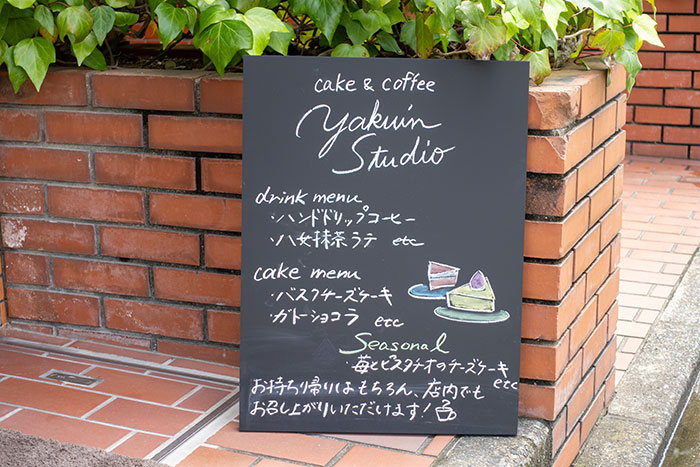 cake & coffee
Yakuin
Studio
drink menu
・ハンドドリップコーヒー
・八女抹茶ラテ etc
cake menu
・バスクチーズケーキ
・ガトーショコラ etc
Seasonal
・苺とピスタチオのチーズケーキ etc
お持ち帰りはもちろん、店内でも
お召し上がりいただけます!